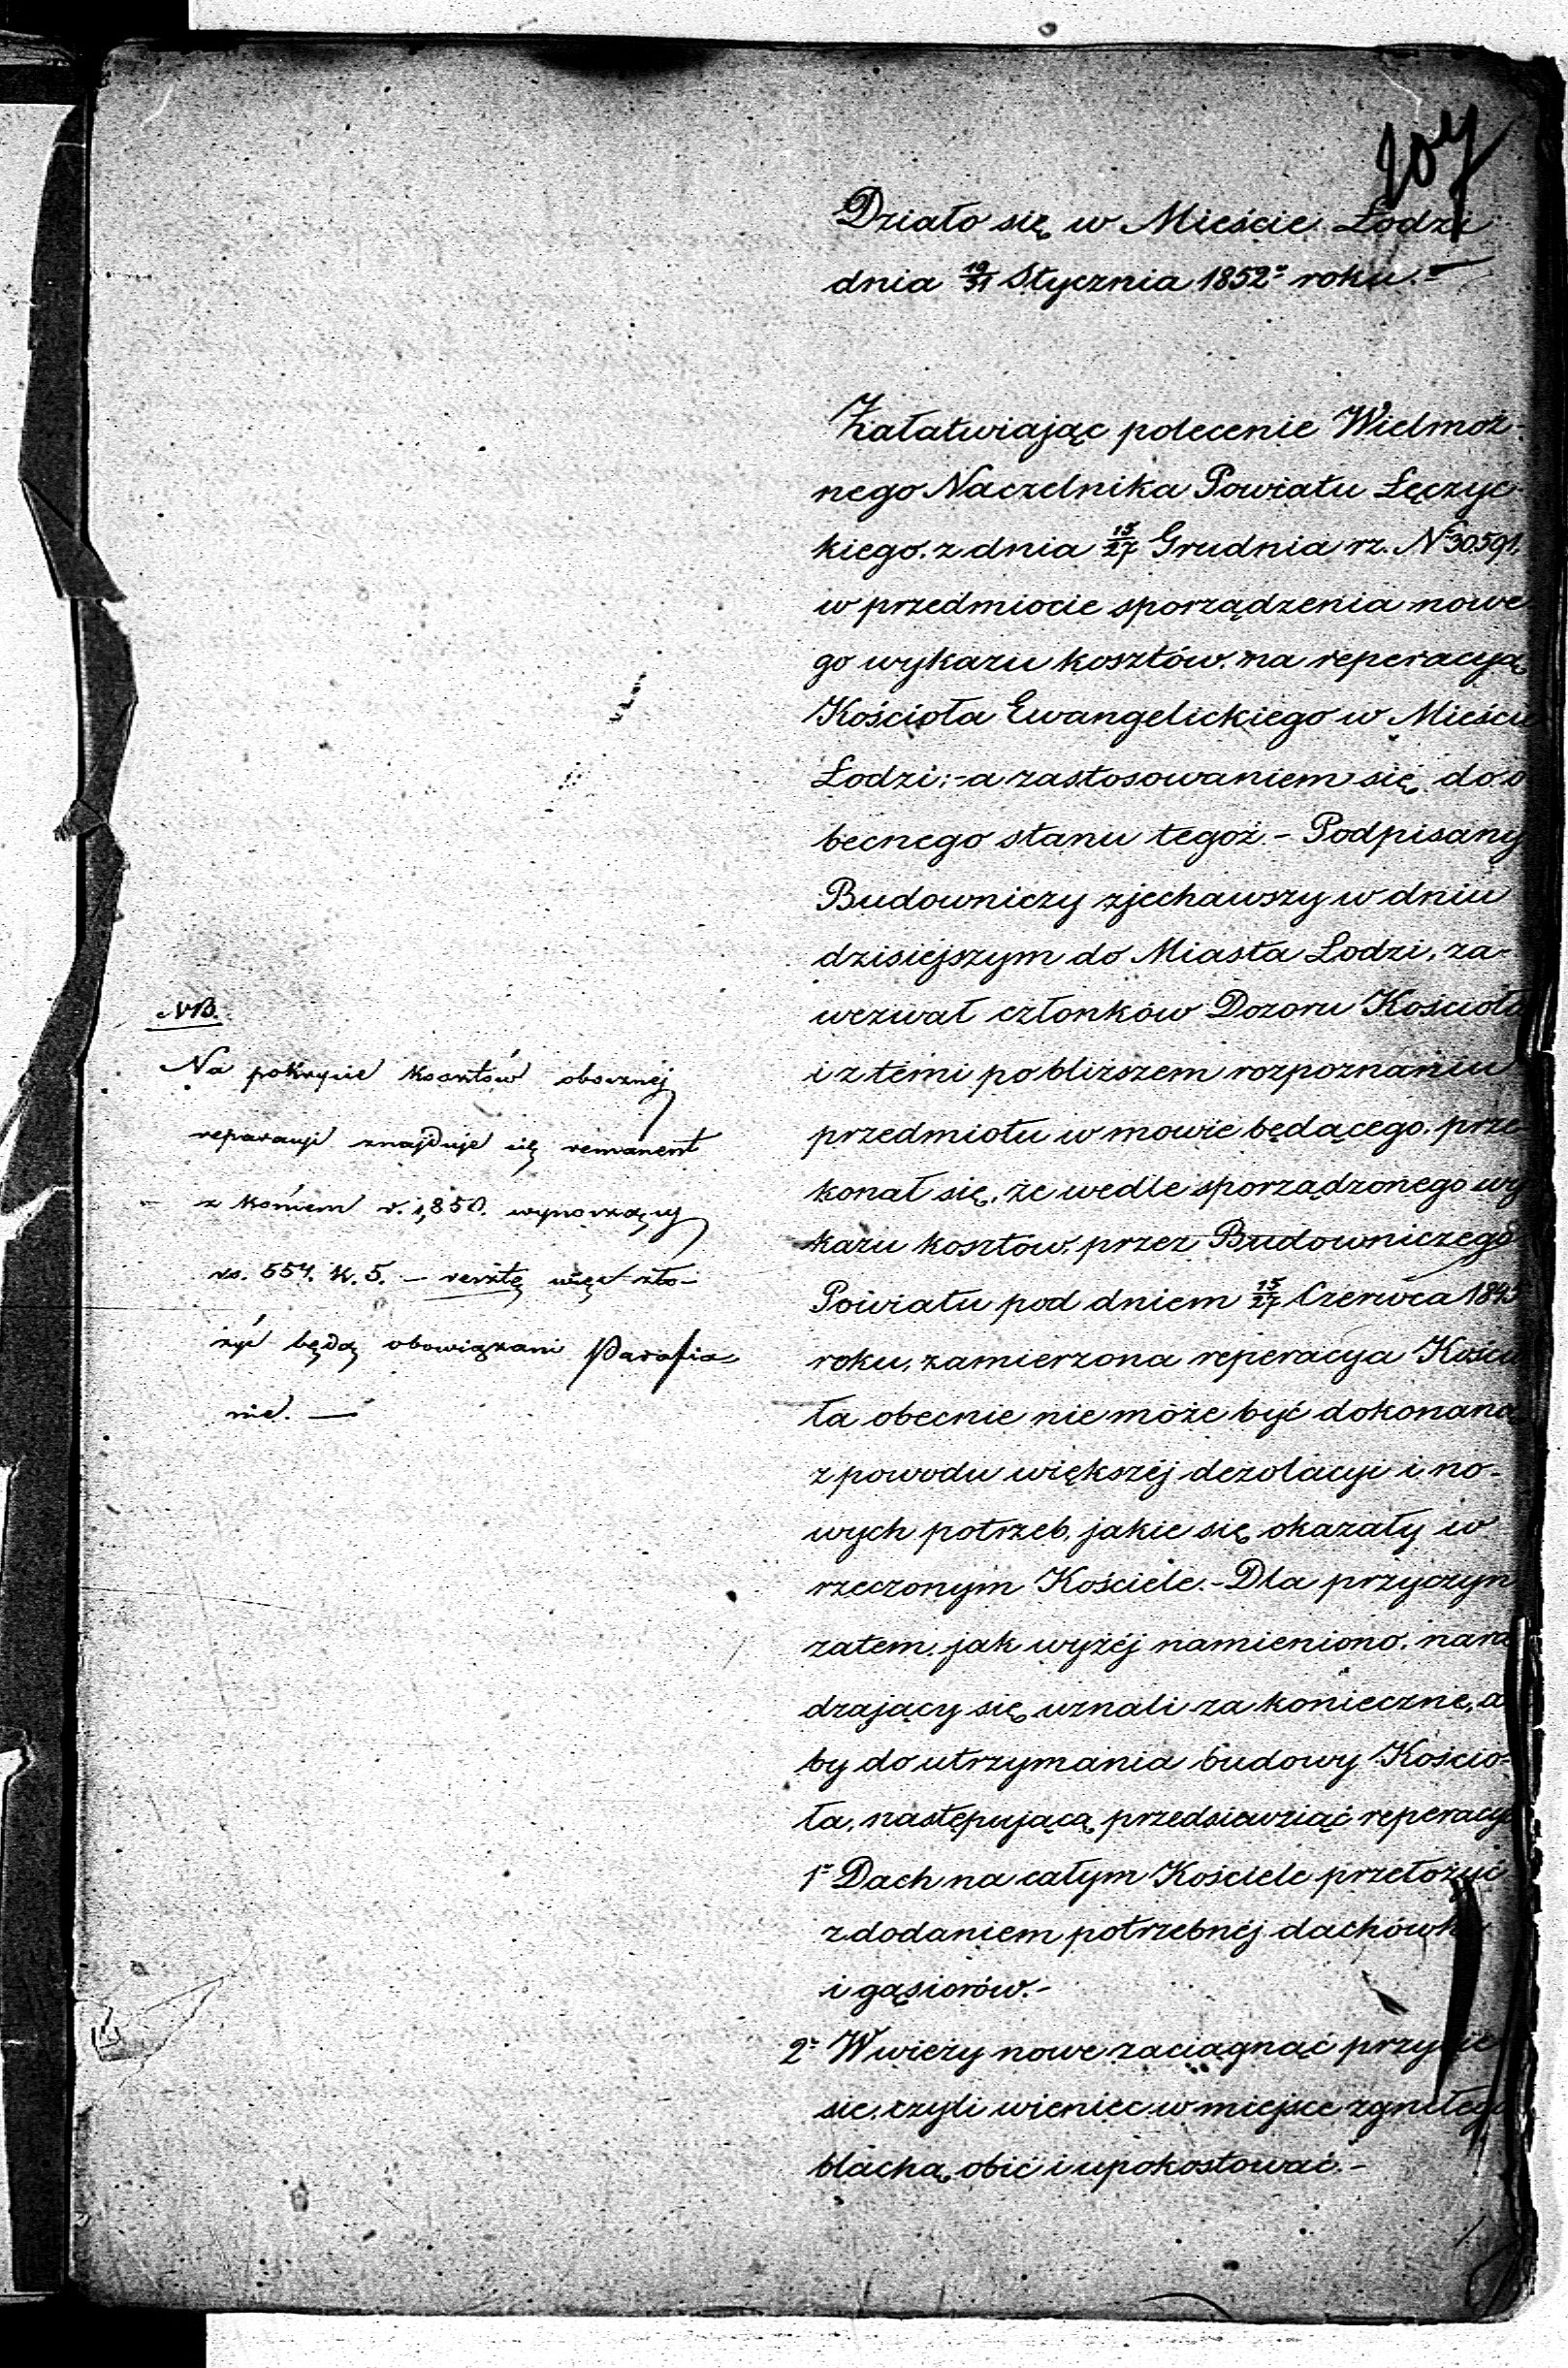 107
Działo się w Mieście Łodzi
dnia 19/31 Stycznia 1852º roku.-
Załatwiając polecenie Wielmoż-
nego Naczelnika Powiatu Łęczyc-
kiego. z dnia 15/27 Grudnia rz. Nº 30591.
w przedmiocie sporządzenia nowe
go wykazu kosztów. na reperacyą
Kościoła Ewangelickiego w Mieście
Łodzi;- a zastosowaniem się do o
becnego stanu tegoż.- Podpisany
Budowniczy zjechawszy w dniu
dzisiejszym do Miasta Łodzi, za-
wezwał członków Dozoru Kościoła
i z témi po bliższem rozpoznaniu
przedmiotu w mowie będącego. prze
konał się, że wedle sporządzonego wy
kazu kosztów, przez Budowniczego
Powiatu pod dniem 15/27 Czerwca 1845
roku, zamierzona reperacya Kościo
ła obecnie nie może być dokonaną
z powodu większéj dezolacyi i no-
wych potrzeb, jakie się okazały w
rzeczonym Kościele.- Dla przyczyn
zatem. jak wyżéj namieniono. nara
dzający się uznali za konieczne, a
by do utrzymania budowy Kościo-
ła, następującą przedsiawziąć reperacyą
1º Dach na całym Kościele przełożyć
z dodaniem potrzebnéj dachówki
i gąsiorów.-
2º W wieży nowe zaciągnąć przycie
sie, czyli wieniec w miejsce zgniłego
blachą obić i upokostować.-
NB.
Na pokrycie kosztów obocznéj
reparacyi znajduje się remanent
z końcem r. 1,850. wynoszący
rs. 554. k. 5. — resztę więc zło-
żyć będą obowiązani Parafia
nie. —